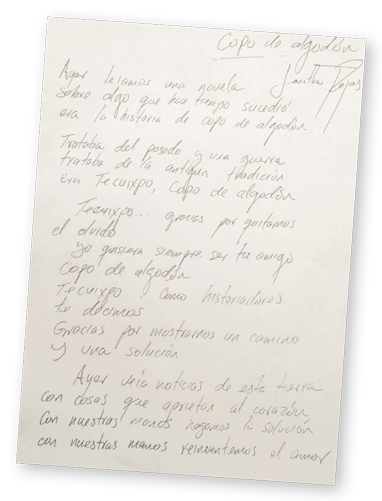 Copo de algodón
Ayer leiamos una novela
sobre algo que hace tiempo sucedió
era la historia de copo de algodón
Trataba del pasado y una guerra
trataba de la antigua tradición
era Tecuixpo, Copo de algodón
Tecuixpo... gracias por quitarnos
el olvido
yo quisiera siempre ser tu amigo
Copo de algodón
Tecuixpo como historiadores
te decimos
Gracias por mostrarnos un camino
y una solución
Ayer veía noticias de esta tierra
con cosas que aprietan al corazón
Con nuestras manos hagamos la solución
con nuestras manos reinventemos el amor